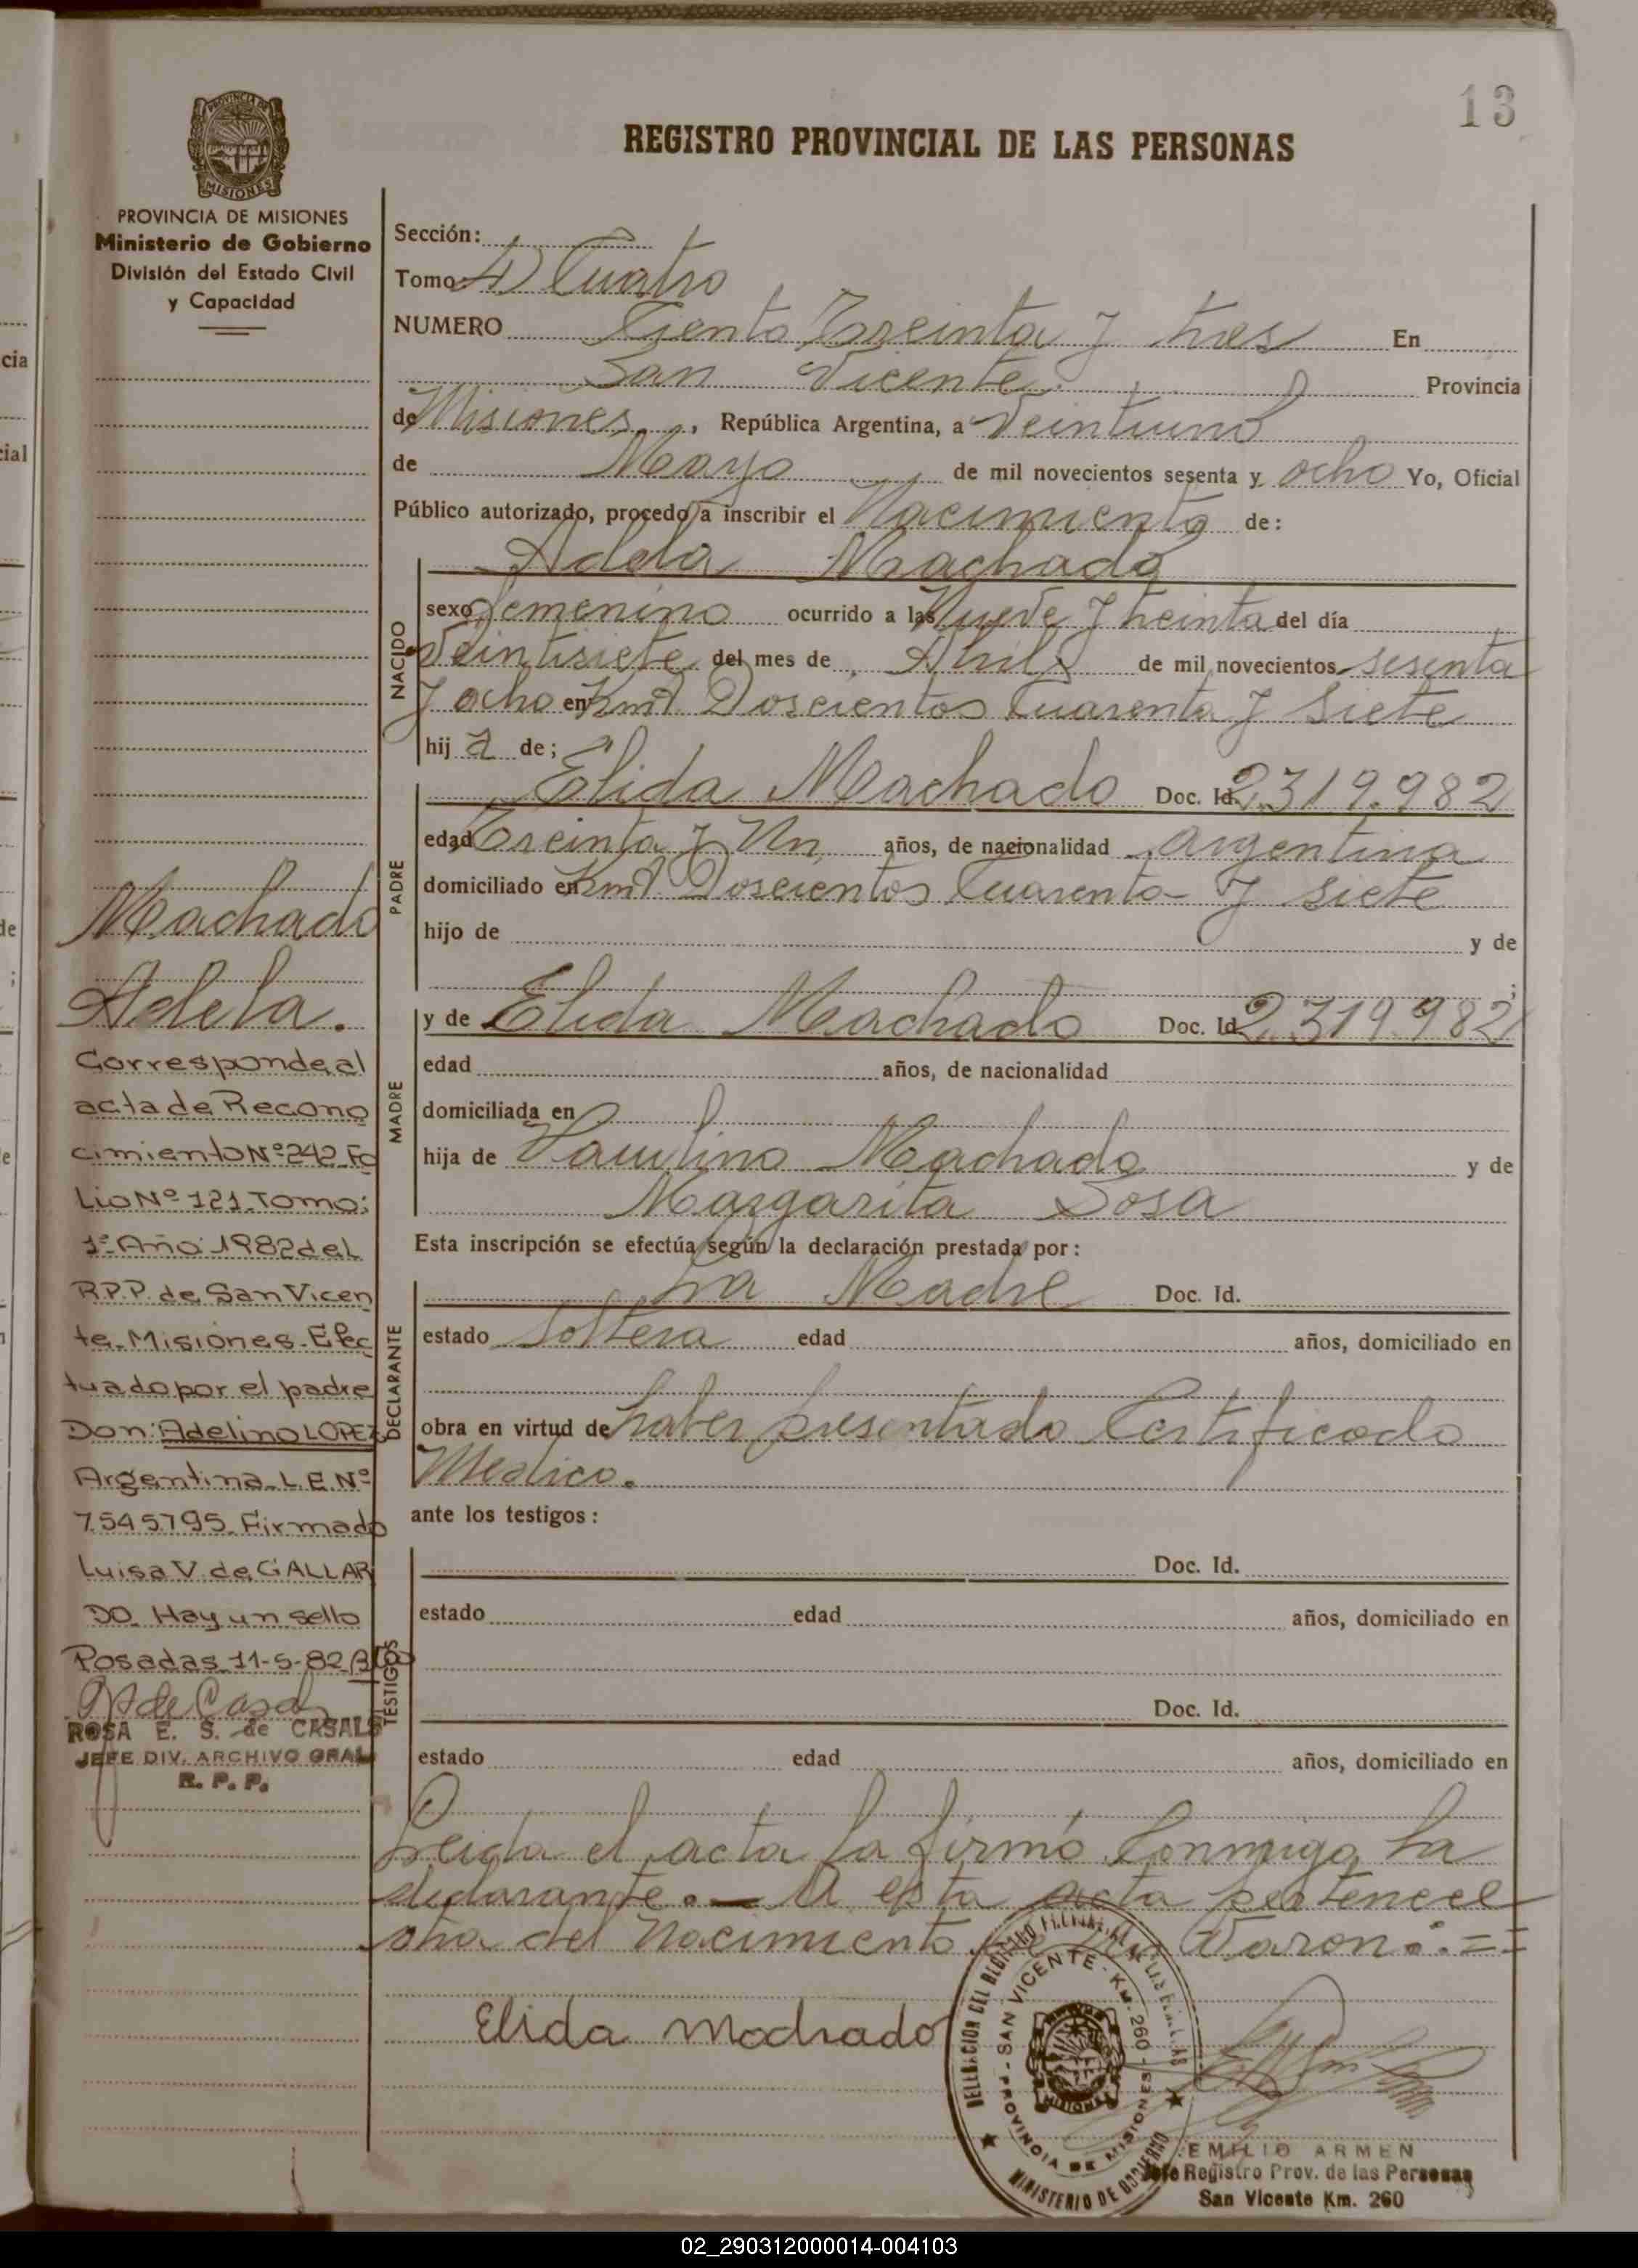 13
REGISTRO PROVINCIAL DE LAS PERSONAS
PROVINCIA DE MISIONES
PROVINCIA DE MISIONES
Ministerio de Gobierno
División del Estado Civil
y Capacidad
Machado
Adela.
Corresponde al
acta de Recono
cimiento Nº 242 Fo
lio Nº 121 Tomo:
1º Año 1982 del
R.P.P. de San Vicen
te. Misiones. Efec
tuado por el padre
Don: Adelino LOPEZ
Argentina L.E. Nº
7545795. Firmado
Luisa V. de GALLAR
DO. Hay un sello
Posadas 11-5-82
ROSA E. S. de CASALS
JEFE DIV. ARCHIVO GRAL
R. P. P.
Sección:
Tomo 4) Cuatro
NUMERO Ciento Treinta y tres En
San Vicente. Provincia
de Misiones, República Argentina, a Veintiuno
de Mayo de mil novecientos sesenta y ocho Yo, Oficial
Público autorizado, procedo a inscribir el Nacimiento de:
Adela Machado
NACIDO
sexo femenino ocurrido a las Nueve y treinta del día
Veintisiete del mes de Abril de mil novecientos sesenta
y ocho en Kmt. Doscientos Cuarenta y Siete
hij a de;
PADRE
Elida Machado Doc. Id. 2.319.982
edad Treinta y Un años, de nacionalidad Argentina
domiciliado en Kmt. Doscientos Cuarenta y siete
hijo de y de
;
MADRE
y de Elida Machado Doc. Id. 2.319.982
edad años, de nacionalidad
domiciliada en
hija de Paulino Machado y de
Margarita Sosa
Esta inscripción se efectúa según la declaración prestada por:
DECLARANTE
La Madre Doc. Id.
estado Soltera edad años, domiciliado en
obra en virtud de haber presentado Certificado
Medico.
ante los testigos:
TESTIGOS
Doc. Id.
estado edad años, domiciliado en
Doc. Id.
estado edad años, domiciliado en
Leida el acta la firmó Conmigo La
declarante. — A esta acta pertenece
otra del Nacimiento de un Varon.:==
Elida Machado
SAN VICENTE - KM. 260 - PROVINCIA DE MISIONES
MINISTERIO DE GOBIERNO
MISIONES
EMILIO ARMEN
Jefe Registro Prov. de las Personas
San Vicente Km. 260
02_290312000014-004103